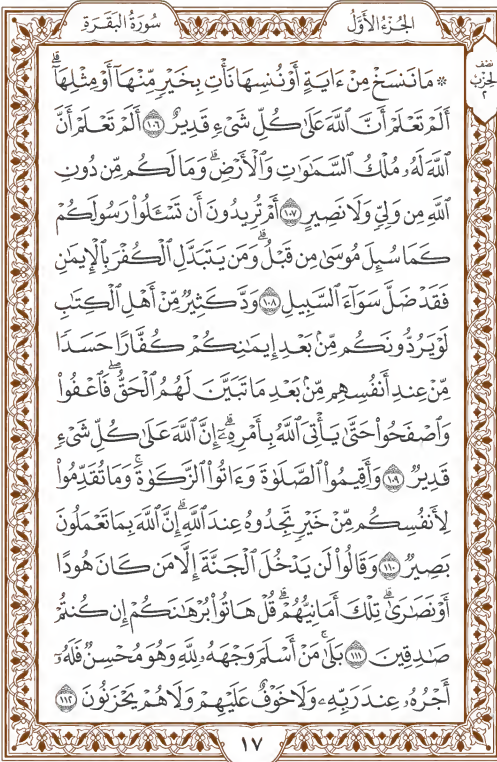 الجُزْءُ الأَوَّلُ
سُورَةُ البَقَرَةِ
نصف
الحزب
٢
۞ مَا نَنسَخْ مِنْ ءَايَةٍ أَوْ نُنسِهَا نَأْتِ بِخَيْرٍ مِّنْهَآ أَوْ مِثْلِهَآۗ
أَلَمْ تَعْلَمْ أَنَّ ٱللَّهَ عَلَىٰ كُلِّ شَىْءٍ قَدِيرٌ ١٠٦ أَلَمْ تَعْلَمْ أَنَّ
ٱللَّهَ لَهُۥ مُلْكُ ٱلسَّمَٰوَٰتِ وَٱلْأَرْضِۗ وَمَا لَكُم مِّن دُونِ
ٱللَّهِ مِن وَلِىٍّ وَلَا نَصِيرٍ ١٠٧ أَمْ تُرِيدُونَ أَن تَسْـَٔلُوا۟ رَسُولَكُمْ
كَمَا سُئِلَ مُوسَىٰ مِن قَبْلُۗ وَمَن يَتَبَدَّلِ ٱلْكُفْرَ بِٱلْإِيمَٰنِ
فَقَدْ ضَلَّ سَوَآءَ ٱلسَّبِيلِ ١٠٨ وَدَّ كَثِيرٌ مِّنْ أَهْلِ ٱلْكِتَٰبِ
لَوْ يَرُدُّونَكُم مِّنۢ بَعْدِ إِيمَٰنِكُمْ كُفَّارًا حَسَدًا
مِّنْ عِندِ أَنفُسِهِم مِّنۢ بَعْدِ مَا تَبَيَّنَ لَهُمُ ٱلْحَقُّۖ فَٱعْفُوا۟
وَٱصْفَحُوا۟ حَتَّىٰ يَأْتِىَ ٱللَّهُ بِأَمْرِهِۦٓۗ إِنَّ ٱللَّهَ عَلَىٰ كُلِّ شَىْءٍ
قَدِيرٌ ١٠٩ وَأَقِيمُوا۟ ٱلصَّلَوٰةَ وَءَاتُوا۟ ٱلزَّكَوٰةَۚ وَمَا تُقَدِّمُوا۟
لِأَنفُسِكُم مِّنْ خَيْرٍ تَجِدُوهُ عِندَ ٱللَّهِۗ إِنَّ ٱللَّهَ بِمَا تَعْمَلُونَ
بَصِيرٌ ١١٠ وَقَالُوا۟ لَن يَدْخُلَ ٱلْجَنَّةَ إِلَّا مَن كَانَ هُودًا
أَوْ نَصَٰرَىٰۗ تِلْكَ أَمَانِيُّهُمْۗ قُلْ هَاتُوا۟ بُرْهَٰنَكُمْ إِن كُنتُمْ
صَٰدِقِينَ ١١١ بَلَىٰۚ مَنْ أَسْلَمَ وَجْهَهُۥ لِلَّهِ وَهُوَ مُحْسِنٌ فَلَهُۥٓ
أَجْرُهُۥ عِندَ رَبِّهِۦ وَلَا خَوْفٌ عَلَيْهِمْ وَلَا هُمْ يَحْزَنُونَ ١١٢
١٧